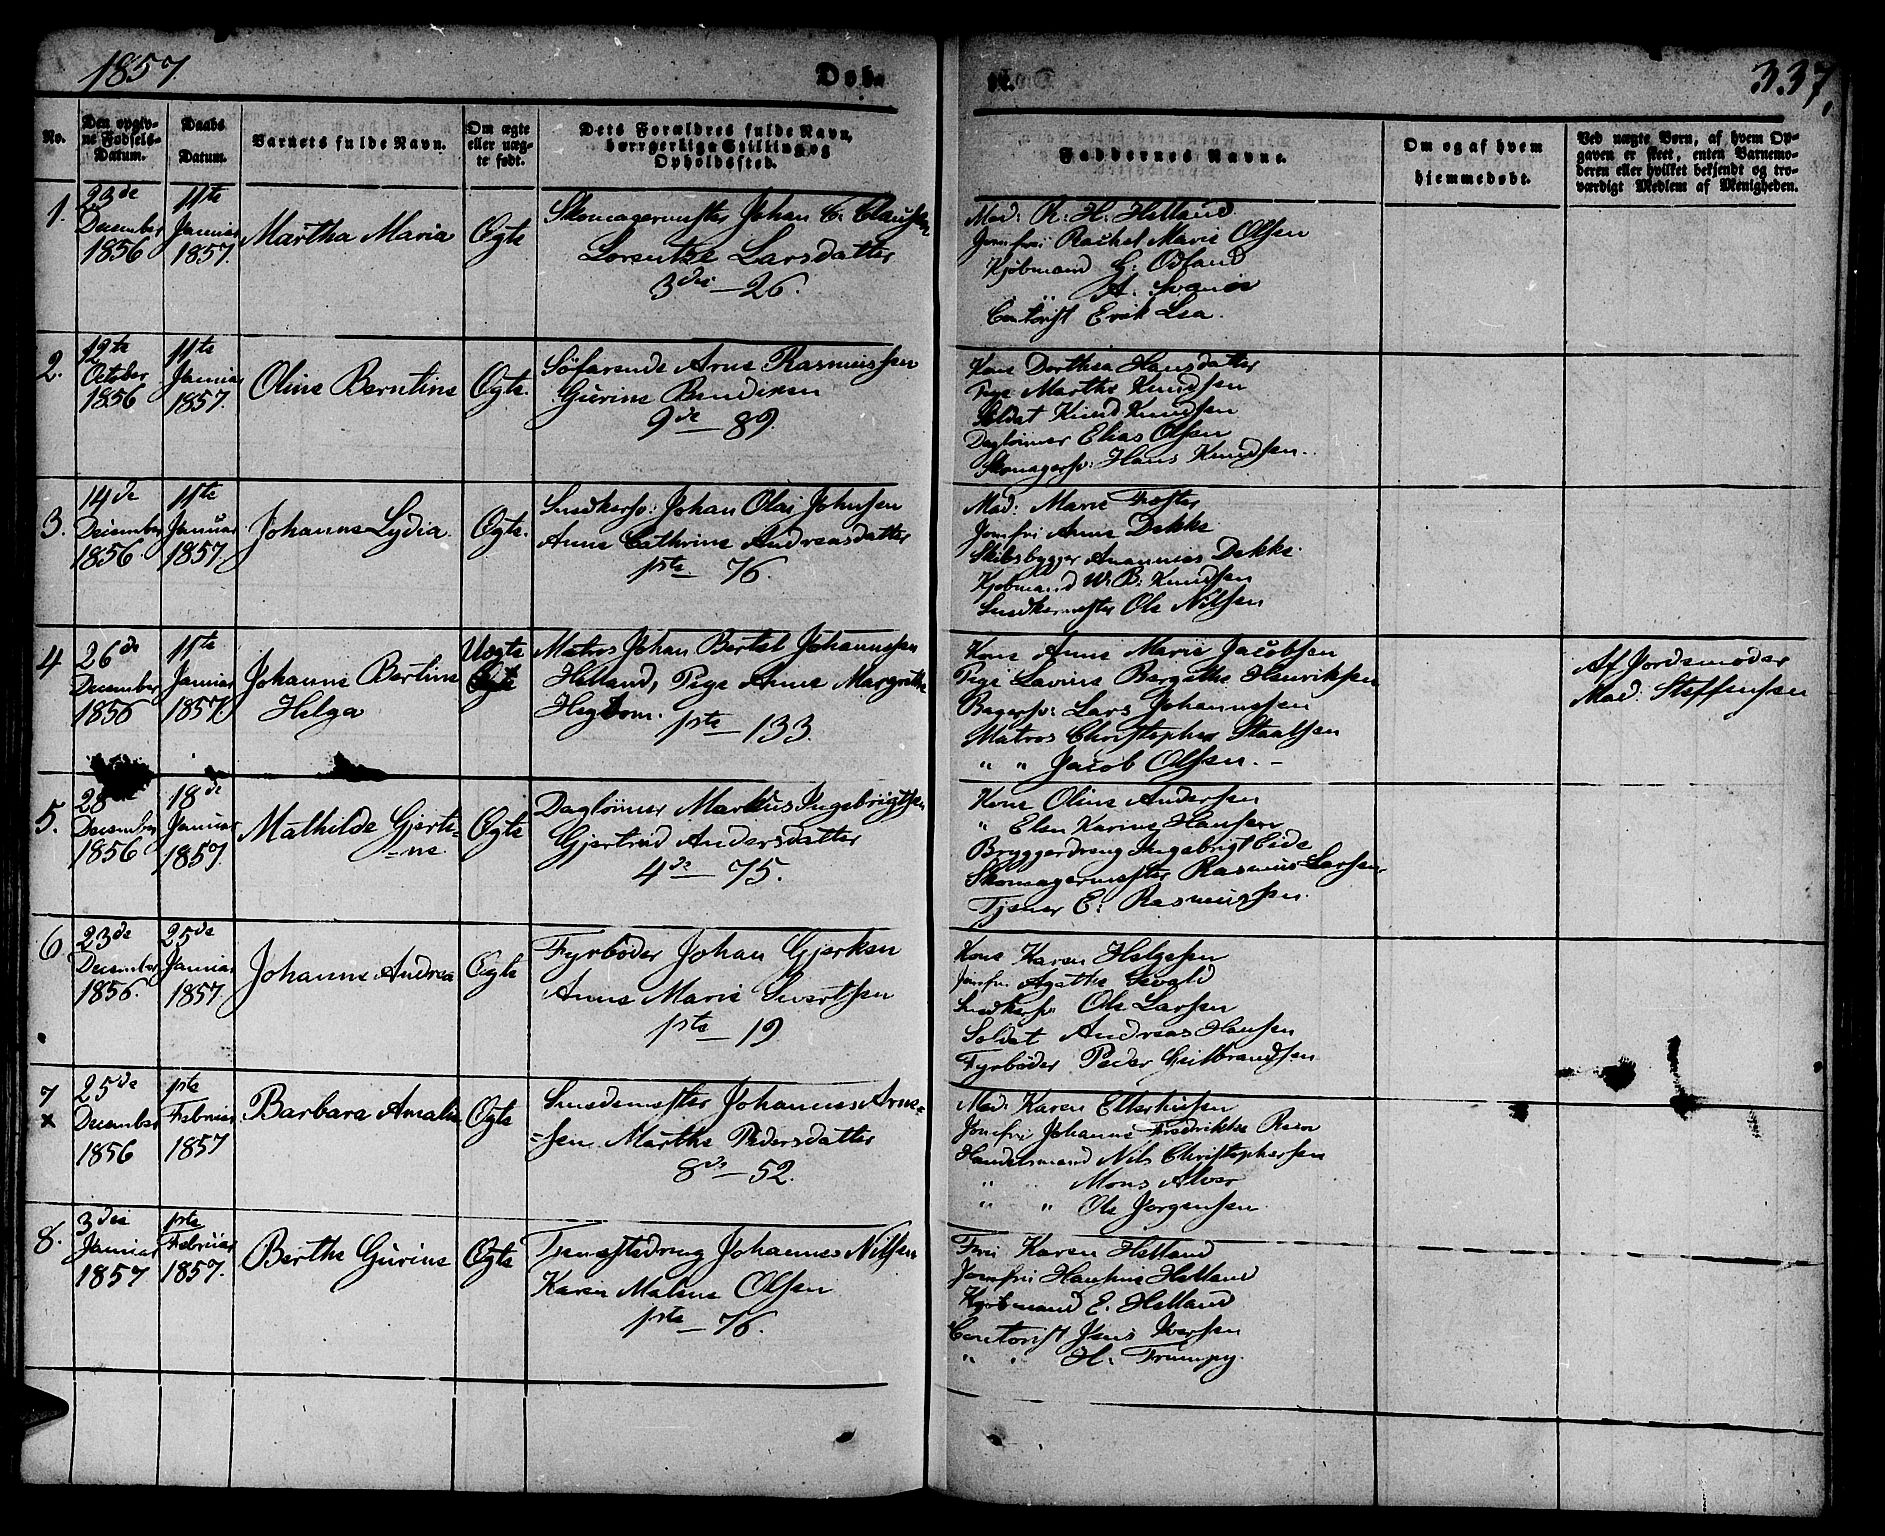 1857
Døb-
te.
337.
No.
Den opgiv-
ne Fødsels-
Datum.
Daabs
Datum.
Barnets fulde Navn.
Om ægte
eller uæg-
te født.
Dets Forældres fulde Navn,
borgerlige Stilling og
Opholdssted.
Faddernes Navne.
Om og af hvem
hjemmedøbt.
Ved uægte Børn, af hvem Op-
gaven er skeet, enten Barnemo-
deren eller hvilket bekjendt og tro-
værdigt Medlem af Menigheden.
1.
23de
December
1856
11te
Januar
1857.
Martha Maria
Ægte
Skomagermester Johan C. Clausen
Lorentze Larsdatter
3die - 26.
Mad: H: Helland
Jomfru Rachel Marie Olsen
Kjøbmand G: Odland
" A. Svanøe
Contorist Erik Lea.
2.
12te
October
1856
11te
Januar
1857.
Oline Berntine
Ægte.
Søfarende Arne Rasmussen
Gurine Bendixen
9de - 89.
Kone Dorthea Hansdatter
Pige Marthe Knudsen
Soldat Knud Knudsen
Dagleiner Elias Olsen
Skomagersv: Hans Knudsen.
3.
14de
December
1856
11te
Januar
1857.
Johanne Lydia.
Ægte.
Snedkersv: Johan Olai Johnsen
Anne Cathrine Andreasdatter
1ste - 76.
Mad: Marie Fæster
Jomfru Anne Dekke
Skibsbygger Anannias Dekke.
Kjøbmand W: B: Knudsen
Snedkermester Ole Nilsen
4
26de
December
1856
11te
Januar
1857.
Johanne Bertine
Helga
Uægte
Matros Johan Bertel Johannessen
Helland, Pige Anne Margrethe
Hegbom. 1ste - 133.
Kone Anne Marie Jacobsen
Pige Lavine Bergithe Henriksen
Bagersv: Lars Johannessen
Matros Christopher Staalsen
" " Jacob Olsen. -
Af Jordemoder
Mad: Steffensen
5.
28de
December
1856
18de
Januar
1857
Mathilde Gjerti-
=ne
Ægte
Dagleiner Markus Ingebrigtsen
Gjertrud Andersdatter
4de - 75.
Kone Oline Andersen
" Elen Karine Hansen
Bryggerdreng Ingebrigt Eide
Skomagermester Rasmus Larsen.
Tjener E: Rasmussen.
6
23de
December
1856.
25de
Januar
1857
Johanne Andrea
Ægte
Fyrbøder Johan Gjerken
Anne Marie Sivertsen
1ste - 19
Kone Karen Helgesen
Jomfru Agathe
Snedkersv: Ole Larsen
Soldat Andreas Hansen
Fyrbøder Peder Gulbrandsen
7
x
25de
December
1856
1ste
Februar
1857
Barbara Amalie
Ægte
Smedemester Johannes Arne=
=sen Marthe Pedersdatter
8de - 52.
Mad: Karen Elterhusen
Jomfru Johanne Fredrikke Reen
Handelsmand Nils Christophersen
" " Mons Alver
" " Ole Jørgensen
8.
3die
Januar
1857
1ste
Februar
1857.
Berthe Gurine
Ægte
Johannes Nilsen
Karen Malene Olsen
1ste - 76.
Fru Karen Helland
Jomfru Hansine Helland
Kjøbmand E. Helland
Contorist Jens Iversen
" " H: Trumpy.